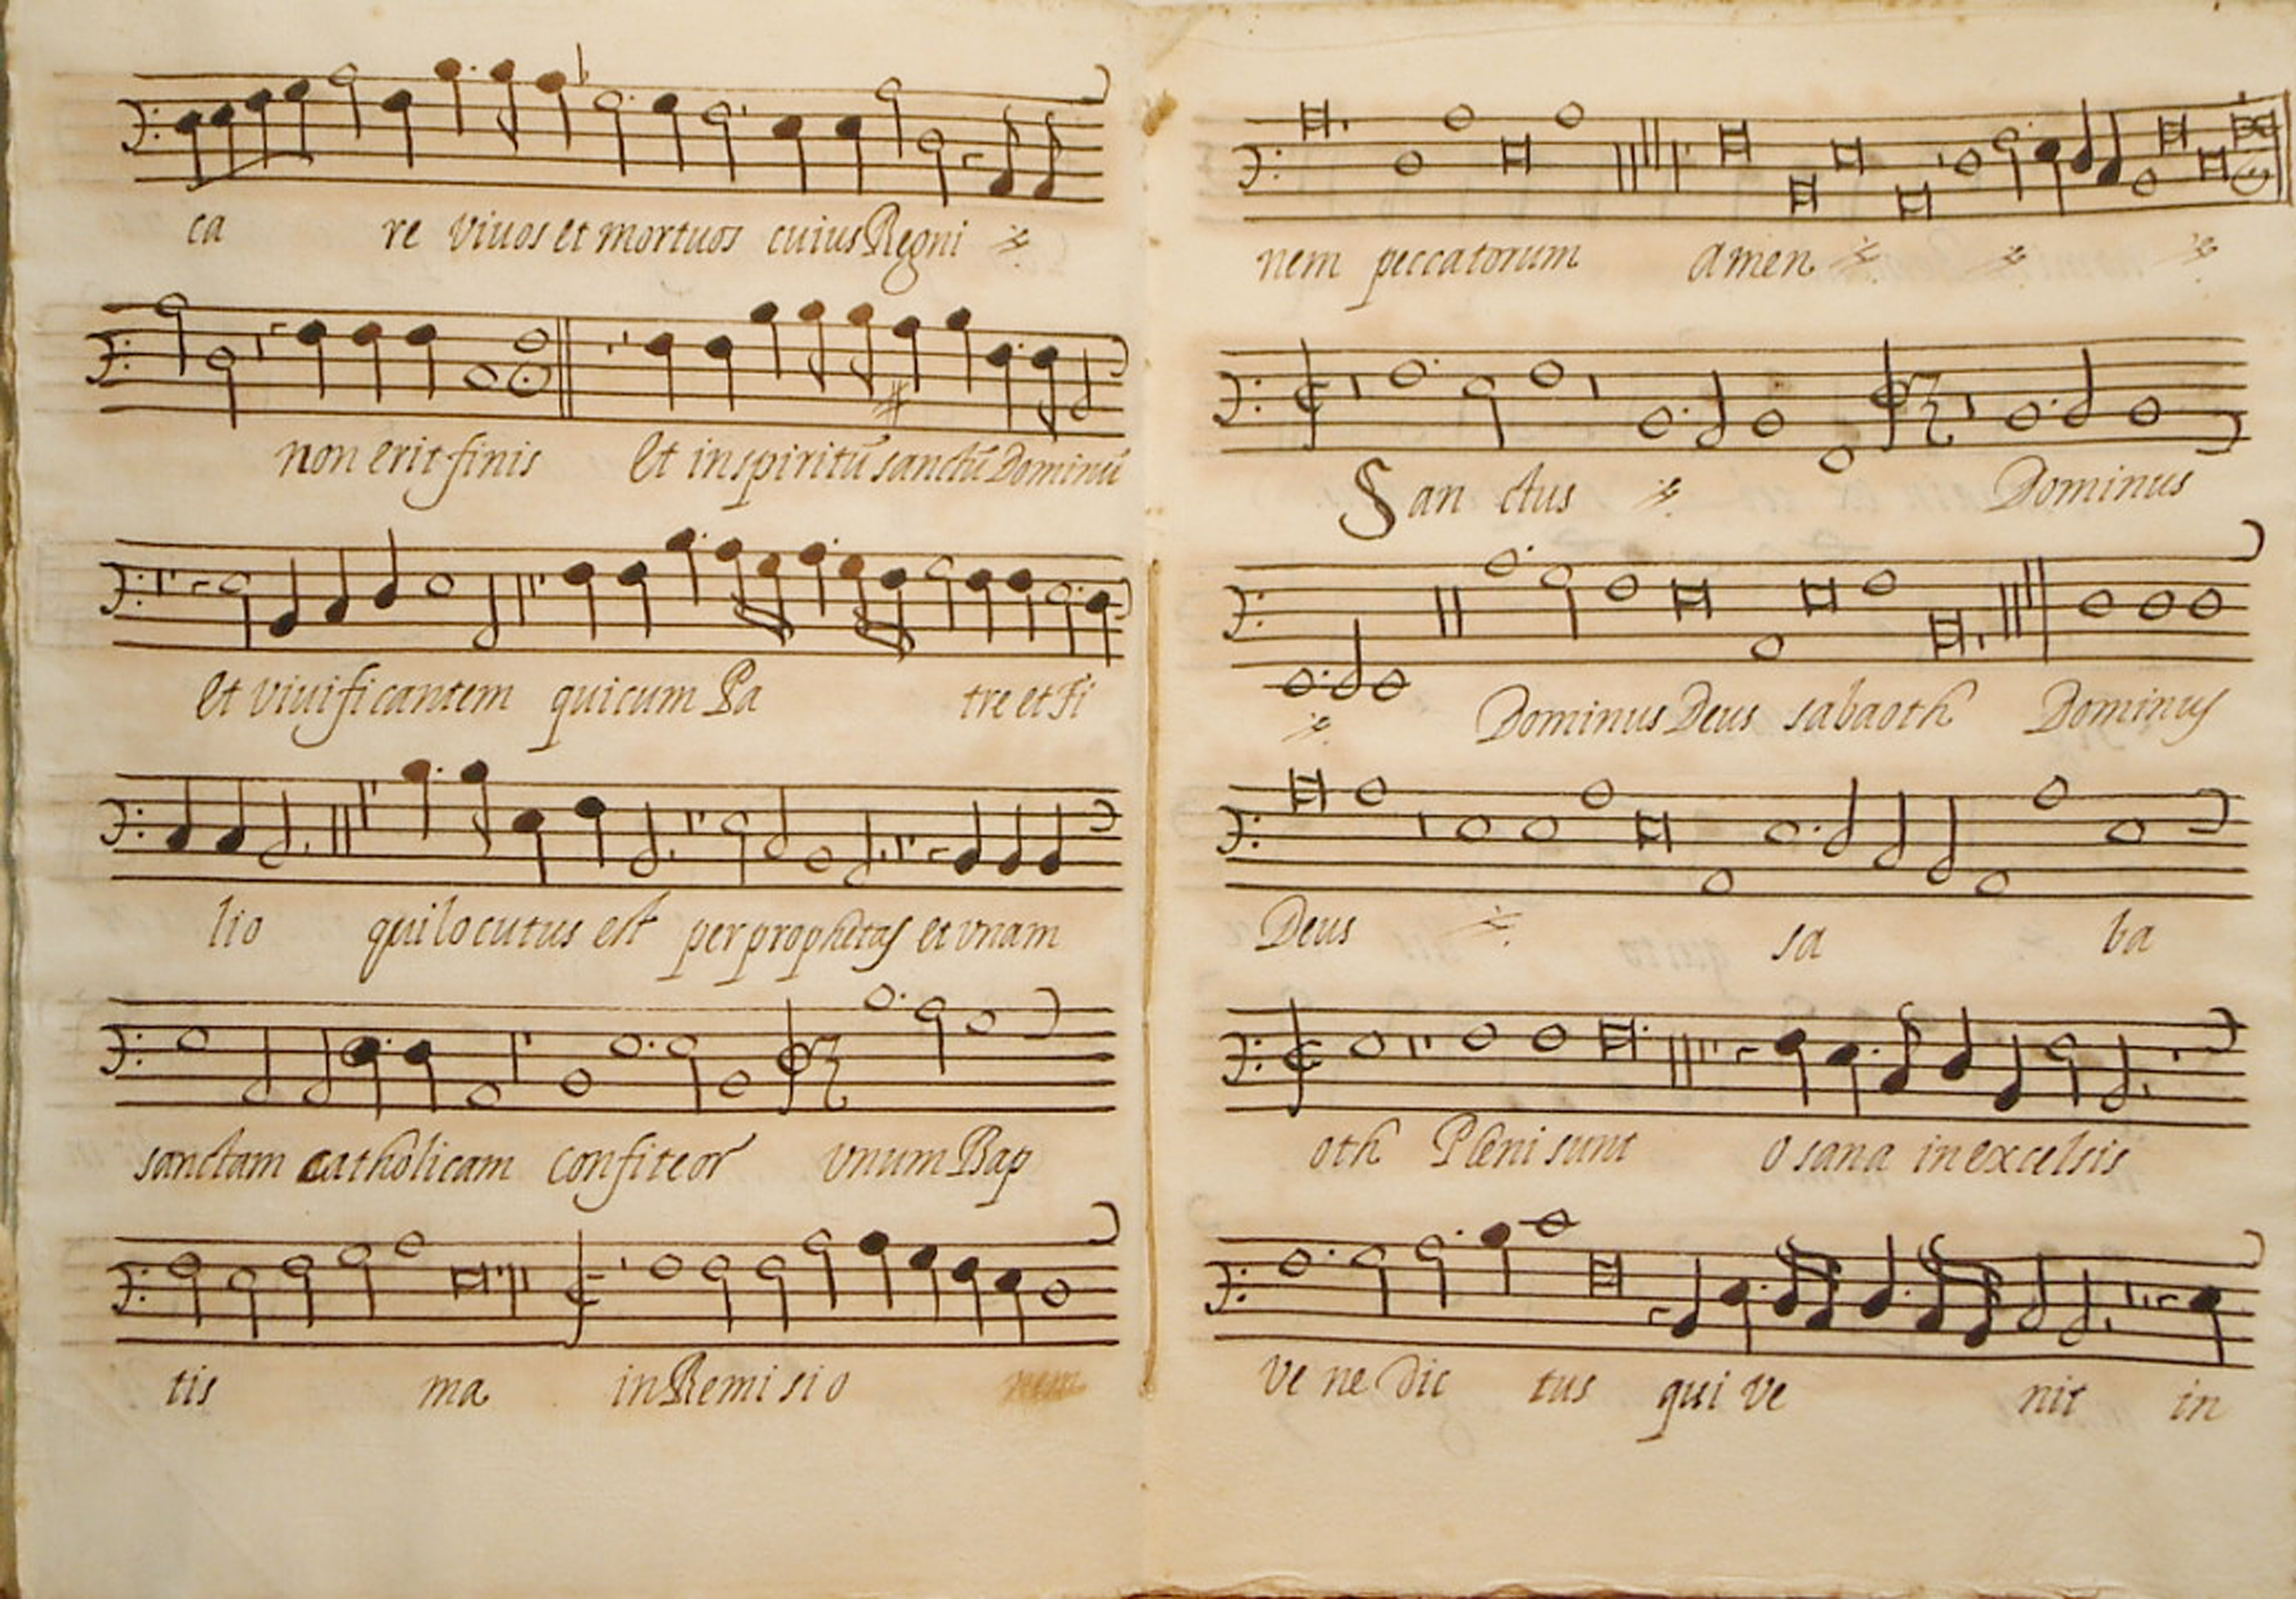 ca re viuos et mortuos cuius Regni
non erit finis Et in spiritū sanctū Dominū
Et viuificantem qui cum Pa tre et Fi
lio qui locutus est per prophetas et vnam
sanctam catholicam confiteor vnum Bap
tis ma in Remi si o nem
nem peccatorum Amen
San ctus Dominus
Dominus Deus sabaoth Dominus
Deus sa ba
oth Pleni sunt O sana in excelsis
ve ne dic tus qui ve nit in